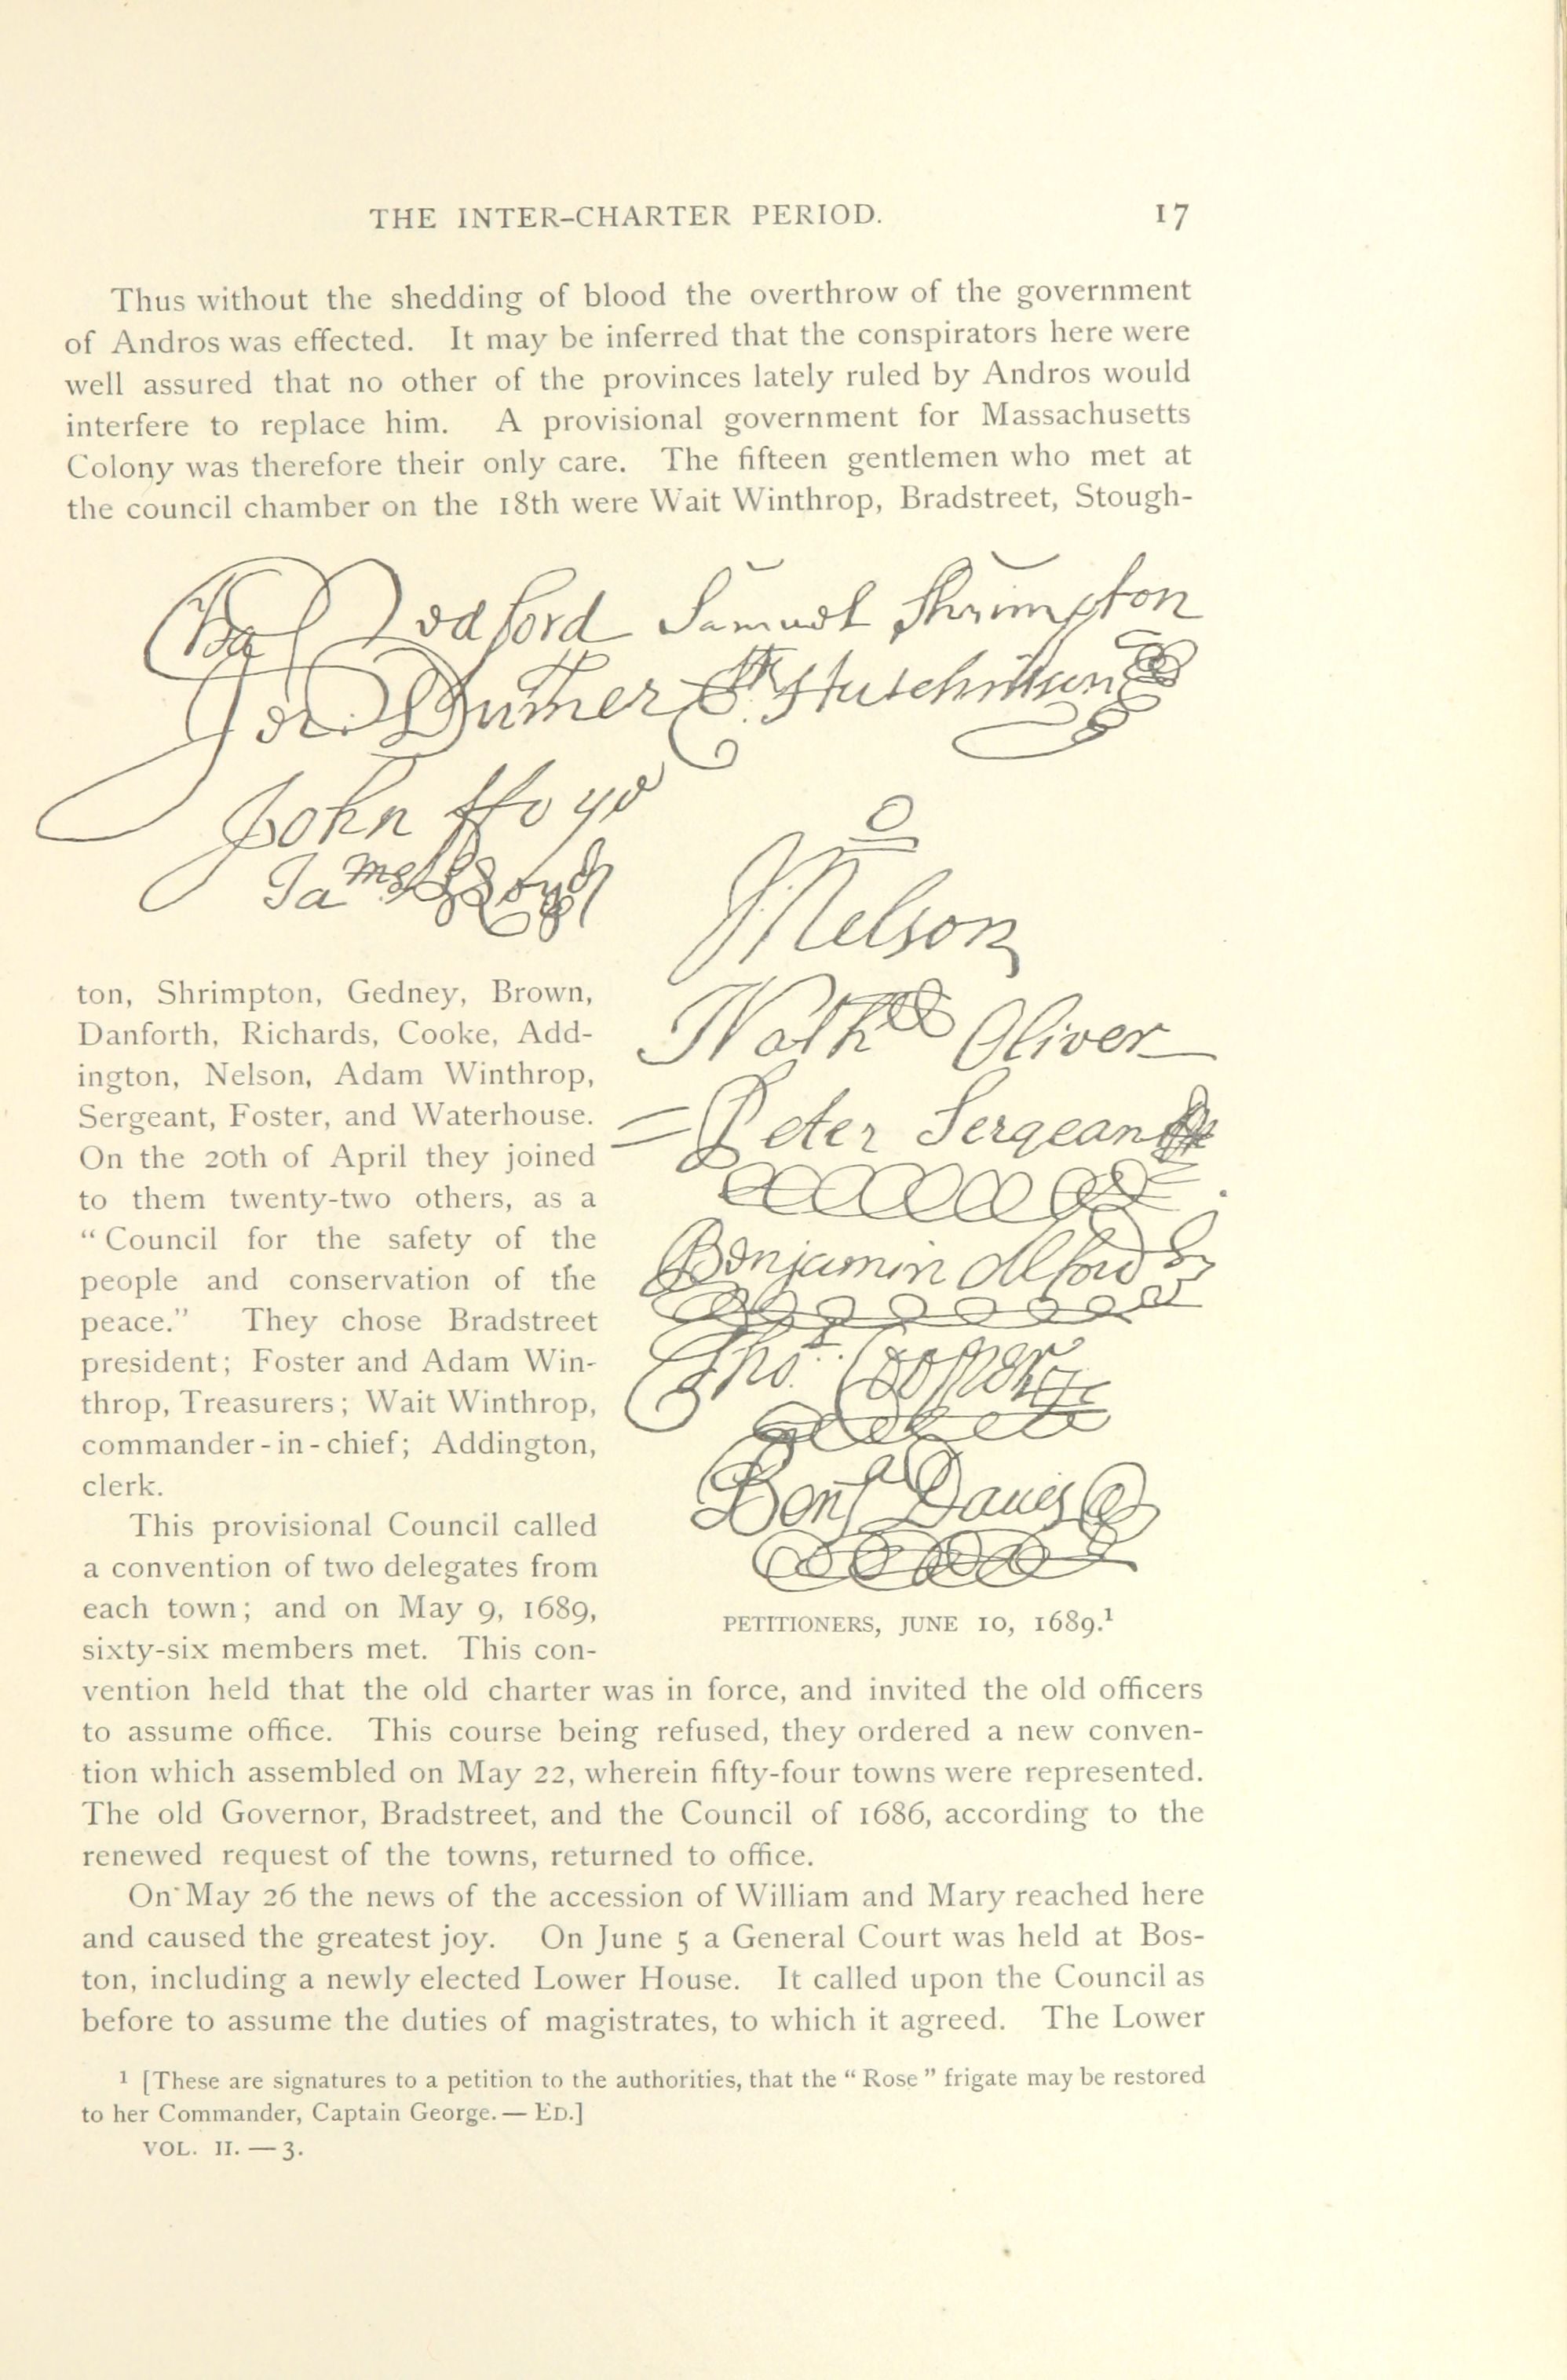 THE INTER-CHARTER PERIOD. 17
Thus without the shedding of blood the overthrow of the government
of Andros was effected. It may be inferred that the conspirators here were
well assured that no other of the provinces lately ruled by Andros would
interfere to replace him. A provisional government for Massachusetts
Colony was therefore their only care. The fifteen gentlemen who met at
the council chamber on the 18th were Wait Winthrop, Bradstreet, Stough-
Samuel Shrimpton
Jer: Dumer El. Hutchinson
John ffoye
James Lloyd
Nelson
Nath Oliver
Peter Sergeant
Benjamin Alford
Thos: Cooper
Benj Davis
ton, Shrimpton, Gedney, Brown,
Danforth, Richards, Cooke, Add-
ington, Nelson, Adam Winthrop,
Sergeant, Foster, and Waterhouse.
On the 20th of April they joined
to them twenty-two others, as a
“Council for the safety of the
people and conservation of the
peace.” They chose Bradstreet
president; Foster and Adam Win-
throp, Treasurers; Wait Winthrop,
commander-in-chief; Addington,
clerk.
This provisional Council called
a convention of two delegates from
each town; and on May 9, 1689,
sixty-six members met. This con-
PETITIONERS, JUNE 10, 1689.¹
vention held that the old charter was in force, and invited the old officers
to assume office. This course being refused, they ordered a new conven-
tion which assembled on May 22, wherein fifty-four towns were represented.
The old Governor, Bradstreet, and the Council of 1686, according to the
renewed request of the towns, returned to office.
On May 26 the news of the accession of William and Mary reached here
and caused the greatest joy. On June 5 a General Court was held at Bos-
ton, including a newly elected Lower House. It called upon the Council as
before to assume the duties of magistrates, to which it agreed. The Lower
¹ [These are signatures to a petition to the authorities, that the “Rose” frigate may be restored
to her Commander, Captain George. — ED.]
VOL. II. — 3.